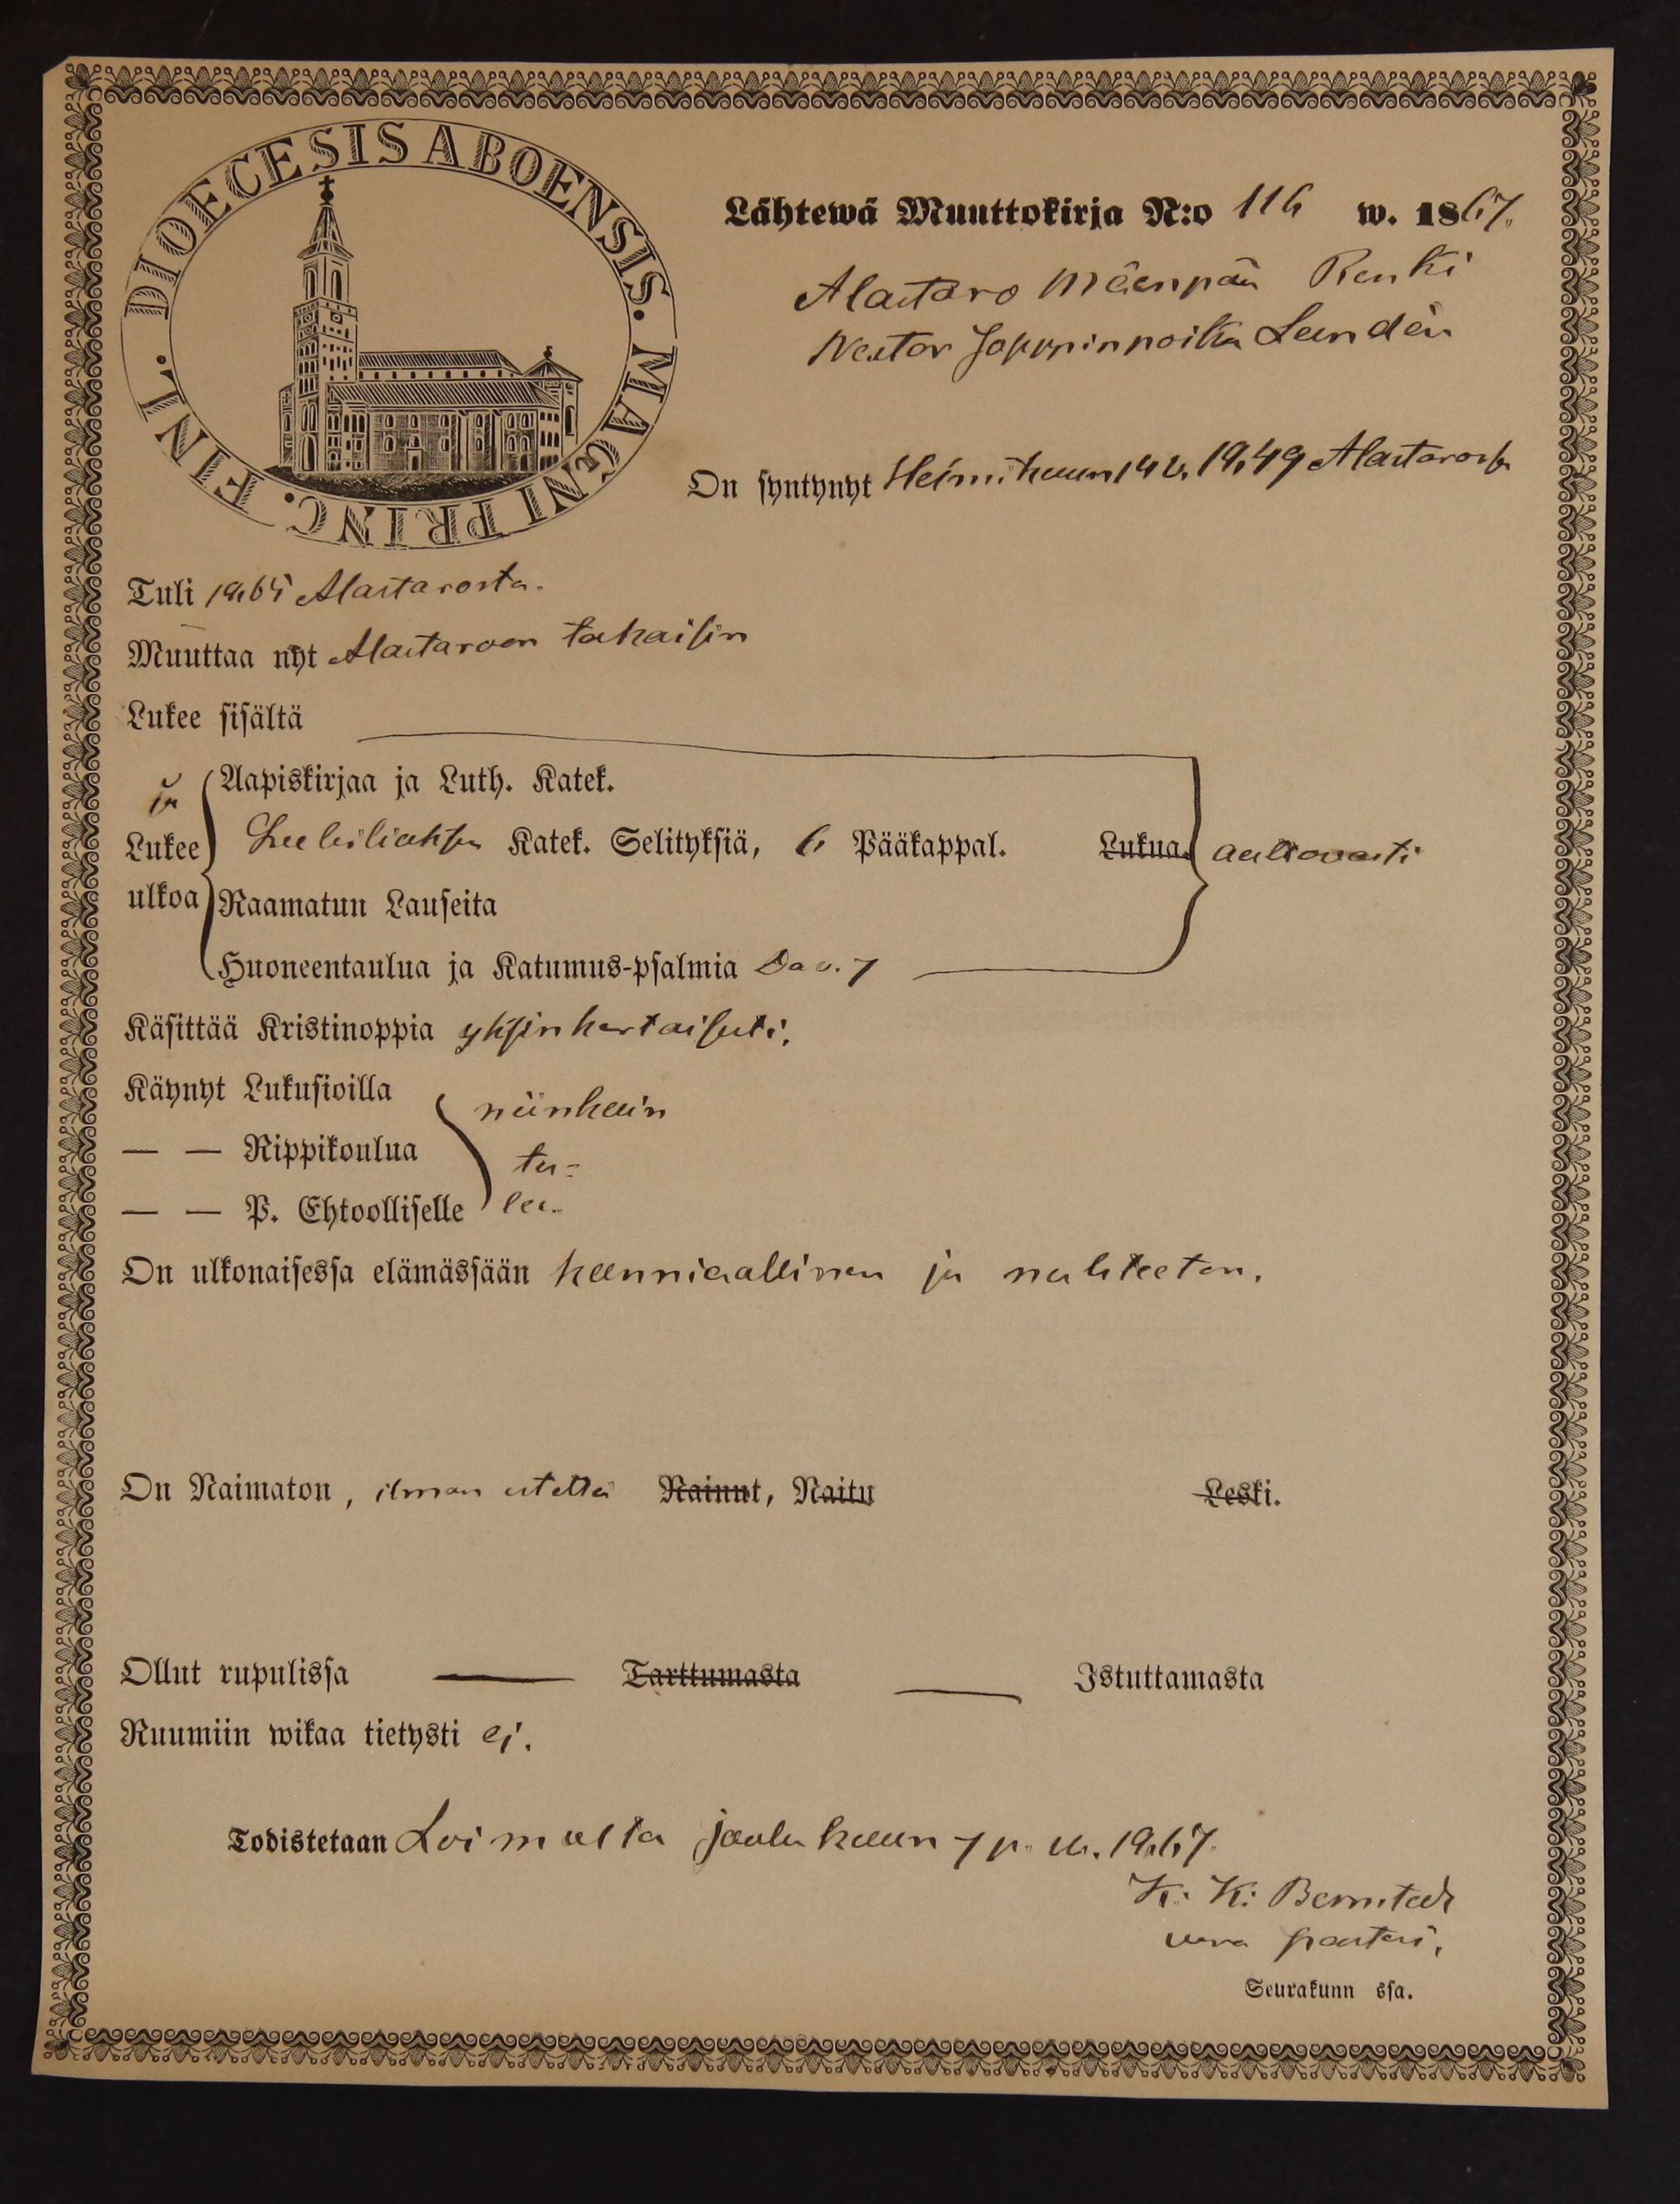 DIOECESIS ABOENSIS. MAGNI PRINC. FINL.
Lähtewä Muuttokirja N:o 116 w. 1867.
Alastaro Mäenpään Renki
Nestor Joppinpoika Lundén
On syntynyt Helmikuun 14 1849 Alastarossa
Tuli 1865 Alastarosta.
Muuttaa nyt Alastaroon takaisin
Lukee sisältä
ja
Aapiskirjaa ja Luth. Katek.
Lukee Katek. Selityksiä, 6 Pääkappal. Lukua. auttavasti
ulkoa Raamatun Lauseita
Huoneentaulua ja Katumus-psalmia Dav. 7
Käsittää Kristinoppia yksinkertaisesti.
Käynyt Lukusioilla niinkuin
— — Rippikoulua tu=
— — P. Ehtoolliselle lee.
On ulkonaisessa elämässään kunniallinen ja nuhteeton.
On Naimaton, ilman estettä Nainut, Naitu Leski.
Ollut rupulissa — Tarttumasta — Istuttamasta
Ruumiin wikaa tietysti ej.
Todistetaan Loimaalta joulukuun 7 p. 1867.
K. K. Bernstedt
vara pastori.
Seurakunn ssa.